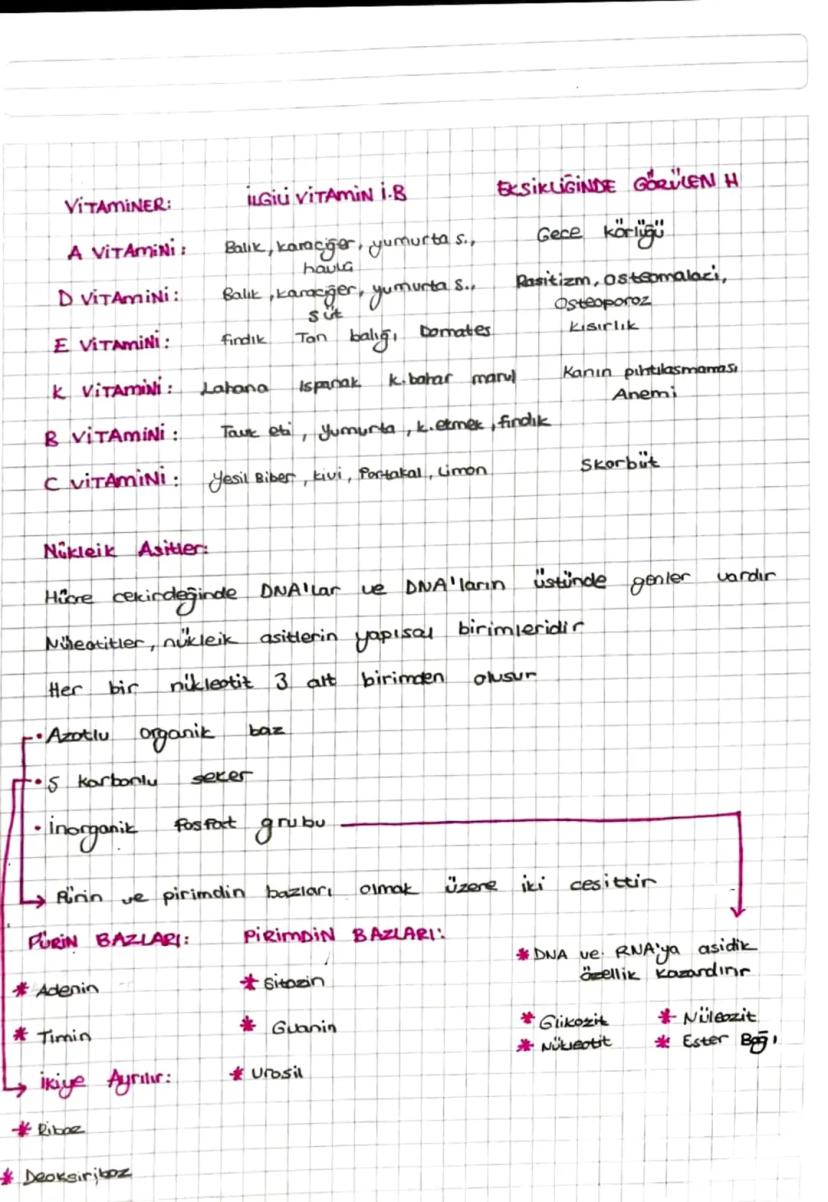 VİTAMİNER: İLGİLİ VİTAMİN İ.B EKSİKLİĞİNDE GÖRÜLEN H
A VİTAMİNİ: Balık, karaciğer, yumurta s., Gece körlüğü
havuç
D VİTAMİNİ: Balık, karaciğer, yumurta s., Raşitizm, osteomalazi,
süt Osteoporoz
E VİTAMİNİ: findik Ton balığı Domates kısırlık
K VİTAMİNİ: Lahana Ispanak k.bahar marul Kanın pıhtılasmaması
Anemi
B VİTAMİNİ: Tavuk eti, yumurta, k.etmek, findik
C VİTAMİNİ: Yesil Biber, kivi, Portakal, Limon Skorbüt
Nükleik Asitler:
Hücre cekirdeğinde DNA'lar ve DNA'ların üstünde genler vardır
Nüleotitler, nükleik asitlerin yapısal birimleridir
Her bir nükleotit 3 alt birimden olusur
• Azotlu organik baz
• 5 karbonlu seker
• İnorganik fosfat grubu
Pürin ve pirimdin bazları olmak üzere iki cesittir
PÜRİN BAZLARI: PİRİMDİN BAZLARI:
* DNA ve RNA'ya asidik
özellik kazandırır
* Adenin * Sitozin
* Timin * Guanin
* Glikozit * Nüleozit
* Nükleotit * Ester Bağı
İkiye Ayrılır: * Urosil
* Riboz
* Deoksiriboz